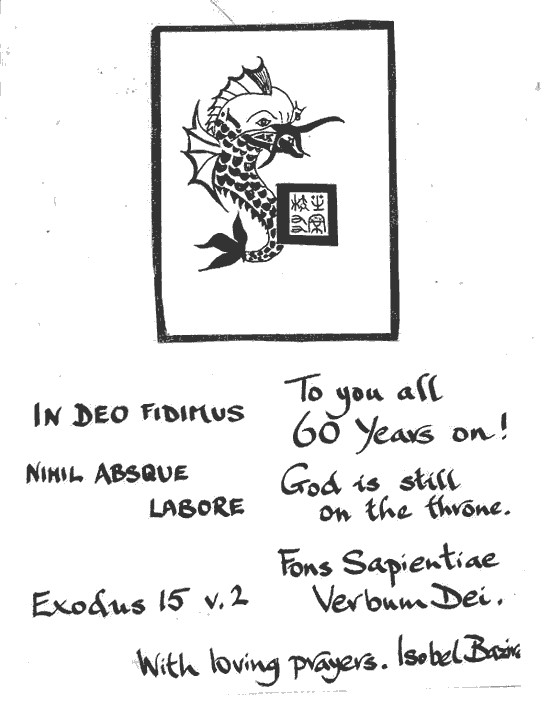 IN DEO FIDIMUS
NIHIL ABSQUE
LABORE
Exodus 15 v.2
To you all
60 Years on!
God is still
on the throne.
Fons Sapientiae
Verbum Dei.
With loving prayers. Isobel